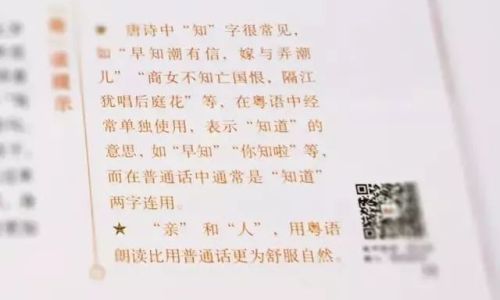 唐诗中“知”字很常见，
如“早知潮有信，嫁与弄潮
儿”“商女不知亡国恨，隔江
犹唱后庭花”等，在粤语中经
常单独使用，表示“知道”的
意思，如“早知”“你知啦”等，
而在普通话中通常是“知道”
两字连用。
★ “亲”和“人”，用粤语
朗读比用普通话更为舒服自然。